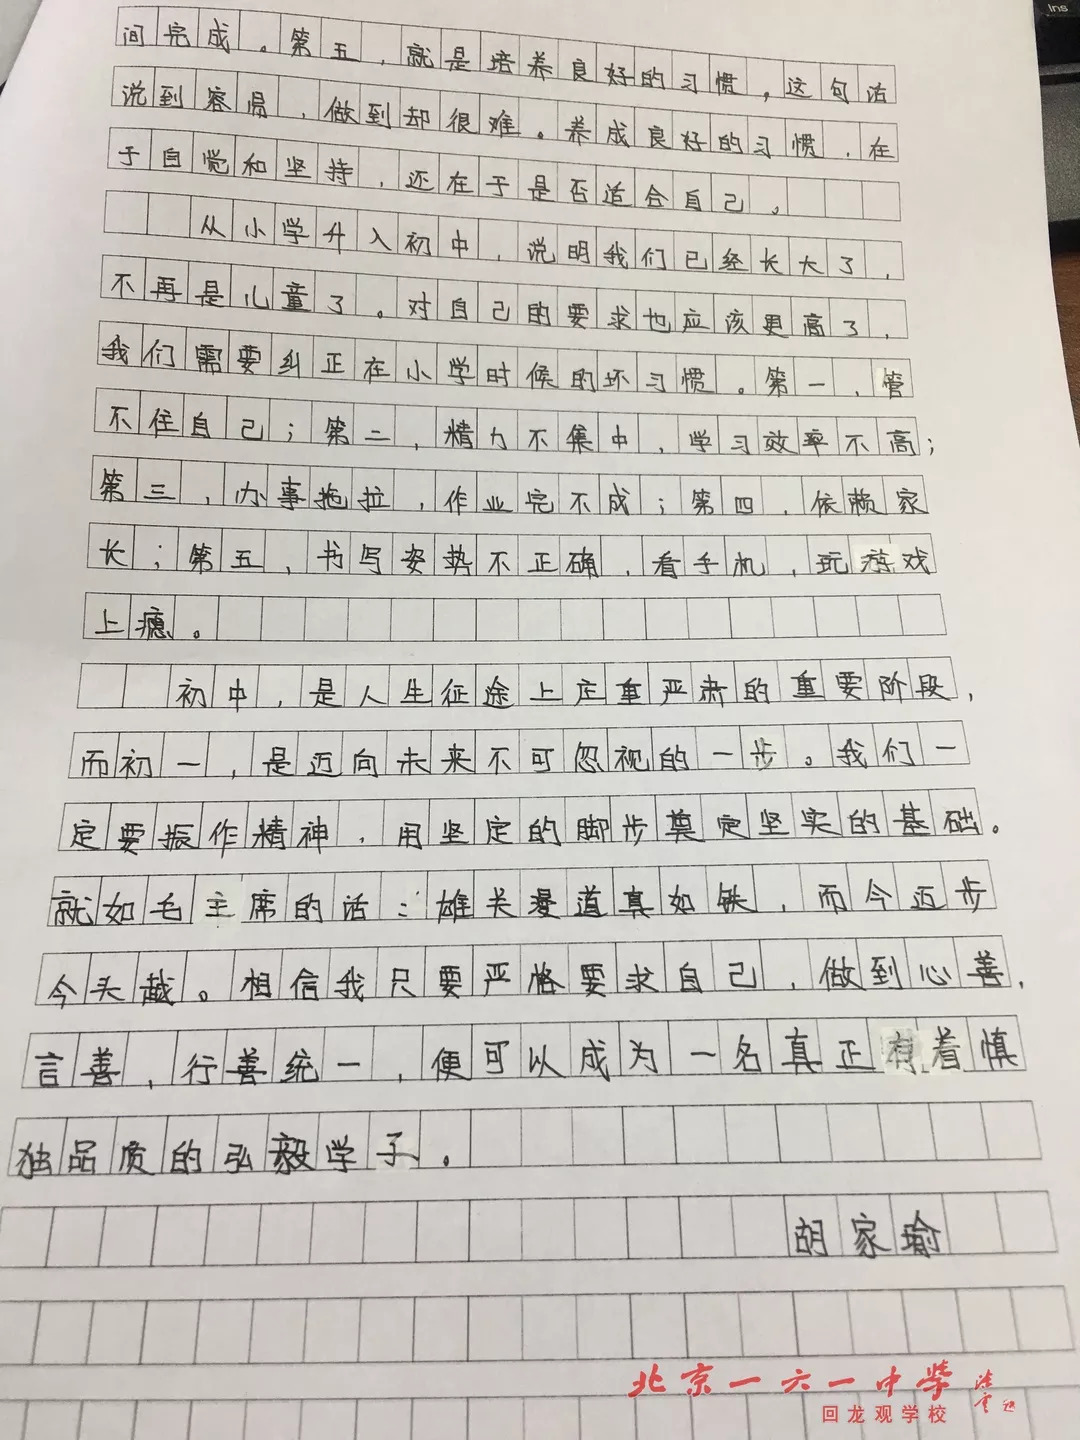 间完成。第五,就是培养良好的习惯,这句话
说到容易,做到却很难。养成良好的习惯,在
于自觉和坚持,还在于是否适合自己。
从小学升入初中,说明我们已经长大了,
不再是儿童了。对自己的要求也应该更高了,
我们需要纠正在小学时候的坏习惯。第一,管
不住自己;第二,精力不集中,学习效率不高;
第三,办事拖拉,作业完不成;第四,依赖家
长;第五,书写姿势不正确,看手机,玩游戏
上瘾。
初中,是人生征途上庄重严肃的重要阶段,
而初一,是迈向未来不可忽视的一步。我们一
定要振作精神,用坚定的脚步奠定坚实的基础。
就如毛主席的话:雄关漫道真如铁,而今迈步
今头越。相信我只要严格要求自己,做到心善,
言善,行善统一,便可以成为一名真正有着慎
独品质的弘毅学子。
胡家瑜
北京一六一中学
回龙观学校
Ins